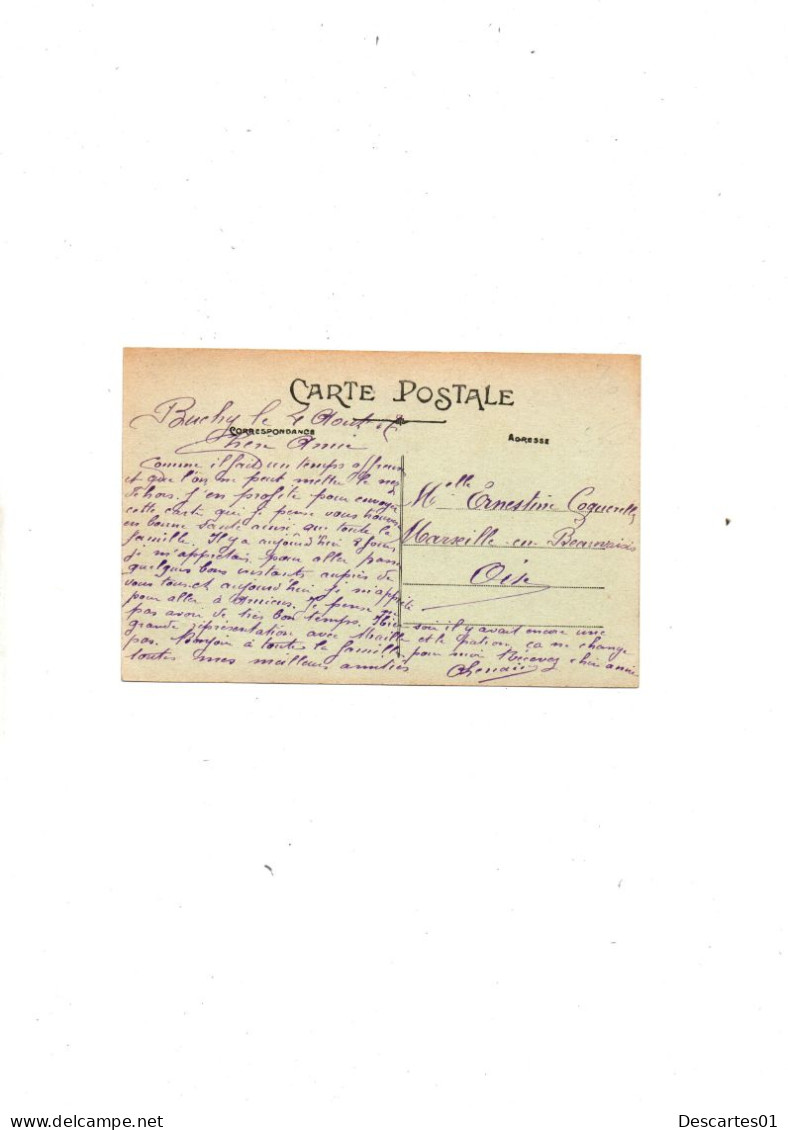 CARTE POSTALE
Buchy le 4 Aout
CORRESPONDANCE
ADRESSE
Chère Amie
Comme il fait un temps affreux
et que l'on ne peut mettre le nez
dehors. J'en profite pour envoyer
cette carte qui je pense vous trouvera
en bonne santé ainsi que toute la
famille. Il y a aujourd'hui 8 jours
je m'apprétais pour aller passer
quelques bons instants auprès de
vous tous et aujourd'hui je m'apprête
pour aller à Amiens. Je pense
pas avoir de très bon temps. Hier soir il y avait encore une
grande représentation avec et le ça ne change
pas. Bonjour à toute la famille pour moi Recevez chère amie
toutes mes meilleures amitiés
Melle Ernestine
Marseille en Beauvaisis
Oise
Descartes01